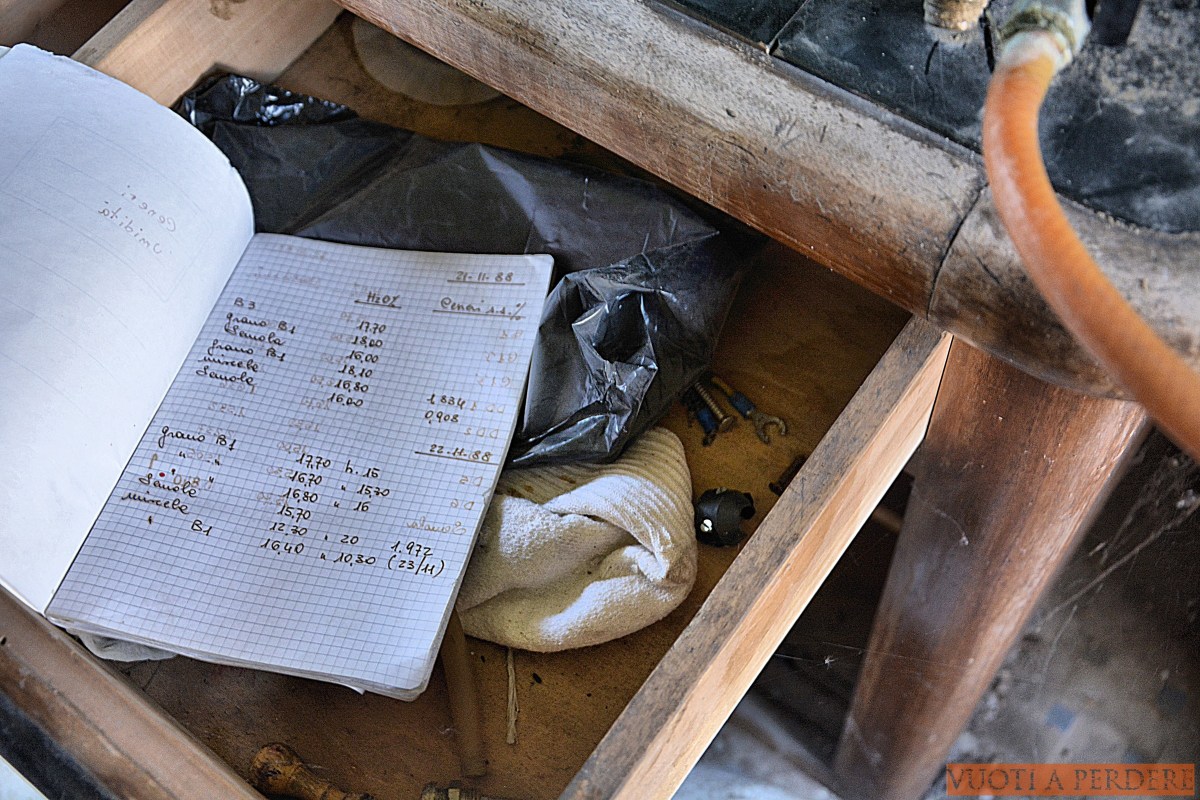 Ceneri
umidità
21-11-88
H2O% Ceneri s.s.%
B3 17,70
grano B1 18,00
Semola 16,00
grano B1 18,10
miscela 16,80 1.834
Semola 16,00 0,908
22-11-88
grano B1 17,70 h. 15
" " 16,70 " 15,30
" " 16,80 " 16
Semola 15,70
miscela 12,30 " 20 1.972
" B1 16,40 " 10,30 (23/11)
VUOTI A PERDERE